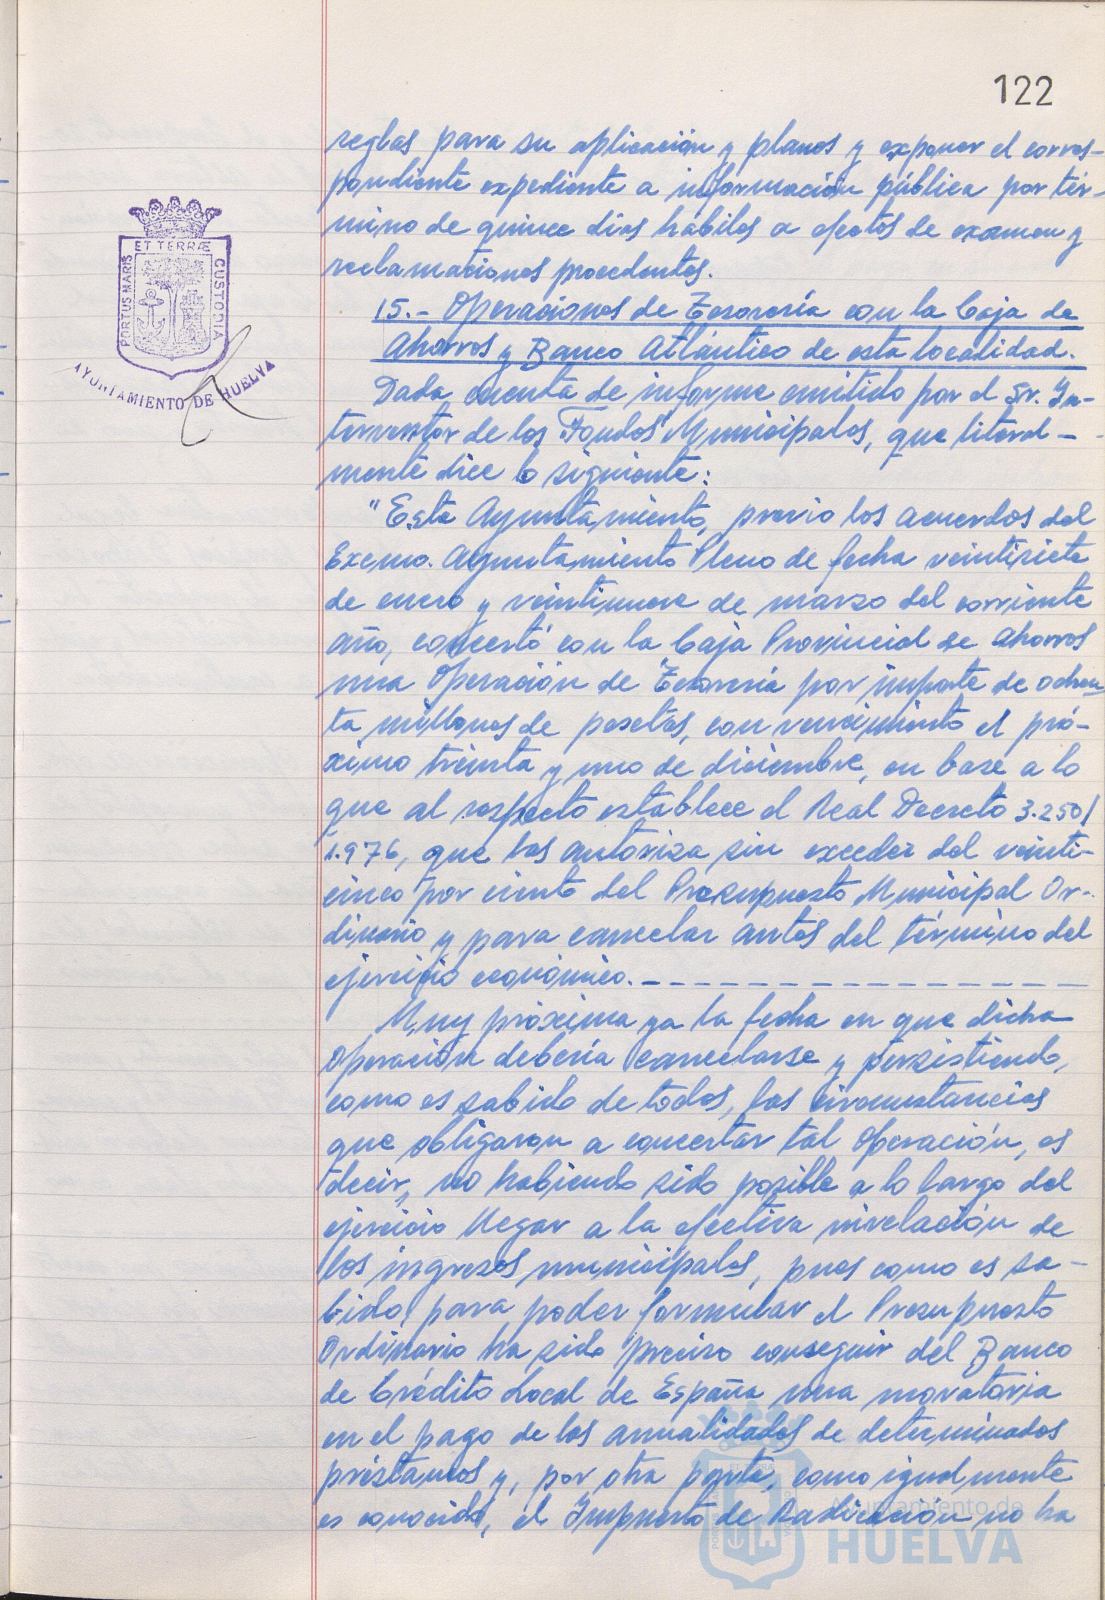 122
reglas para su aplicación y planos y exponer el corres-
pondiente expediente a información pública por tér-
mino de quince días hábiles a efectos de examen y
reclamaciones procedentes.
15.- Operaciones de Tesorería con la Caja de
Ahorros y Banco Atlántico de esta localidad.
Dada cuenta de informe emitido por el Sr. In-
terventor de los Fondos Municipales, que literal-
mente dice lo siguiente:
"Este Ayuntamiento, previo los acuerdos del
Excmo. Ayuntamiento Pleno de fecha veintisiete
de enero y veintinueve de marzo del corriente
año, concertó con la Caja Provincial de Ahorros
una Operación de Tesorería por importe de ochen
ta millones de pesetas, con vencimiento el pró-
ximo treinta y uno de diciembre, en base a lo
que al respecto establece el Real Decreto 3.250/
1.976, que las autoriza sin exceder del veinti-
cinco por ciento del Presupuesto Municipal Or-
dinario y para cancelar antes del término del
ejercicio económico.
Muy próxima ya la fecha en que dicha
Operación debería cancelarse y persistiendo,
como es sabido de todos, las circunstancias
que obligaron a concertar tal Operación, es
decir, no habiendo sido posible a lo largo del
ejercicio llegar a la efectiva nivelación de
los ingresos municipales, pues como es sa-
bido, para poder formular el Presupuesto
Ordinario ha sido preciso conseguir del Banco
de Crédito Local de España una moratoria
en el pago de las anualidades de determinados
préstamos y, por otra parte, como igualmente
es conocido, el Impuesto de Radicación no ha
PORTUS MARIS
ET TERRÆ
CUSTODIA
AYUNTAMIENTO DE HUELVA
Ayuntamiento de
HUELVA